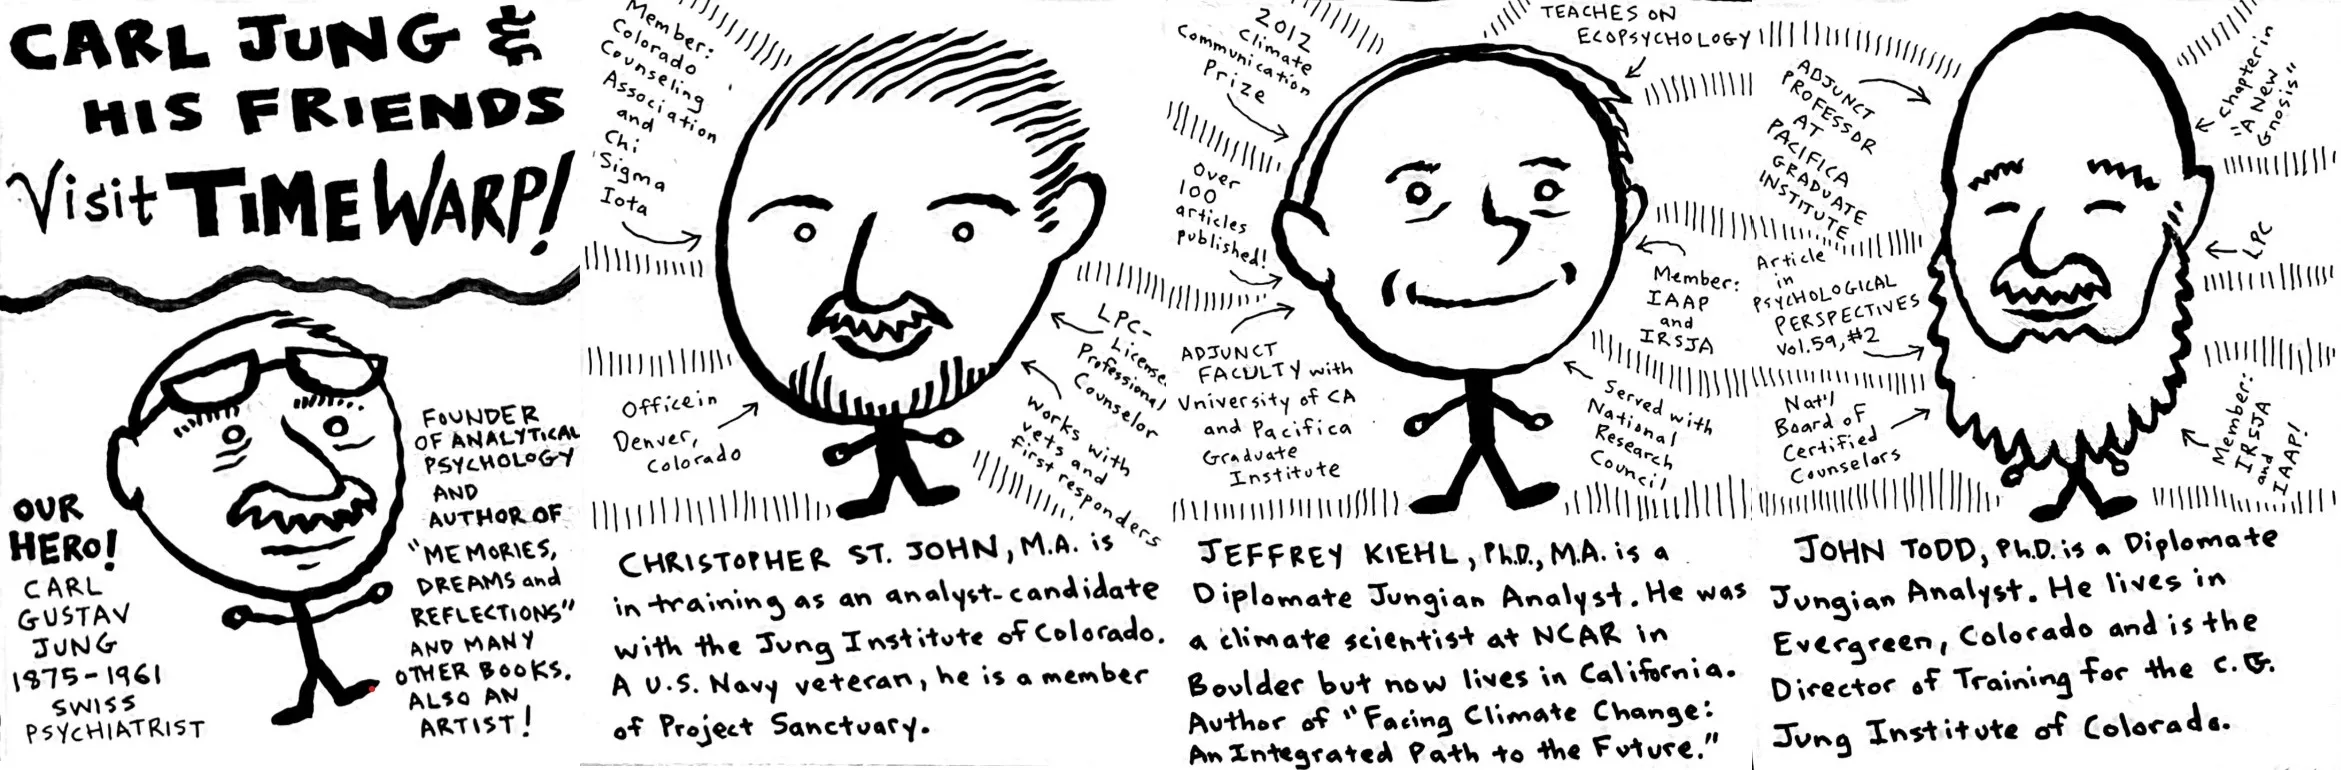 CARL JUNG &
HIS FRIENDS
Visit TIME WARP!
OUR
HERO!
CARL
GUSTAV
JUNG
1875-1961
SWISS
PSYCHIATRIST
FOUNDER
OF ANALYTICAL
PSYCHOLOGY
AND
AUTHOR OF
"MEMORIES,
DREAMS and
REFLECTIONS"
AND MANY
OTHER BOOKS.
ALSO AN
ARTIST!
Member:
Colorado
Counseling
Association
and
Chi
Sigma
Iota
Office in
Denver,
Colorado
LPC-
License
Professional
Counselor
Works with
vets and
first responders
CHRISTOPHER ST. JOHN, M.A. is
in training as an analyst-candidate
with the Jung Institute of Colorado.
A U.S. Navy veteran, he is a member
of Project Sanctuary.
2012
Climate
Communication
Prize
TEACHES ON
ECOPSYCHOLOGY
Over
100
articles
published!
ADJUNCT
FACULTY with
University of CA
and Pacifica
Graduate
Institute
Member:
IAAP
and
IRSJA
Served with
National
Research
Council
JEFFREY KIEHL, Ph.D., M.A. is a
Diplomate Jungian Analyst. He was
a climate scientist at NCAR in
Boulder but now lives in California.
Author of "Facing Climate Change:
An Integrated Path to the Future."
ADJUNCT
PROFESSOR
AT
PACIFICA
GRADUATE
INSTITUTE
Article
in
PSYCHOLOGICAL
PERSPECTIVES
Vol.59, #2
Nat'l
Board of
Certified
Counselors
Chapter in
"A New
Gnosis"
LPC
Member:
IRSJA
and
IAAP!
JOHN TODD, Ph.D. is a Diplomate
Jungian Analyst. He lives in
Evergreen, Colorado and is the
Director of Training for the C.G.
Jung Institute of Colorado.